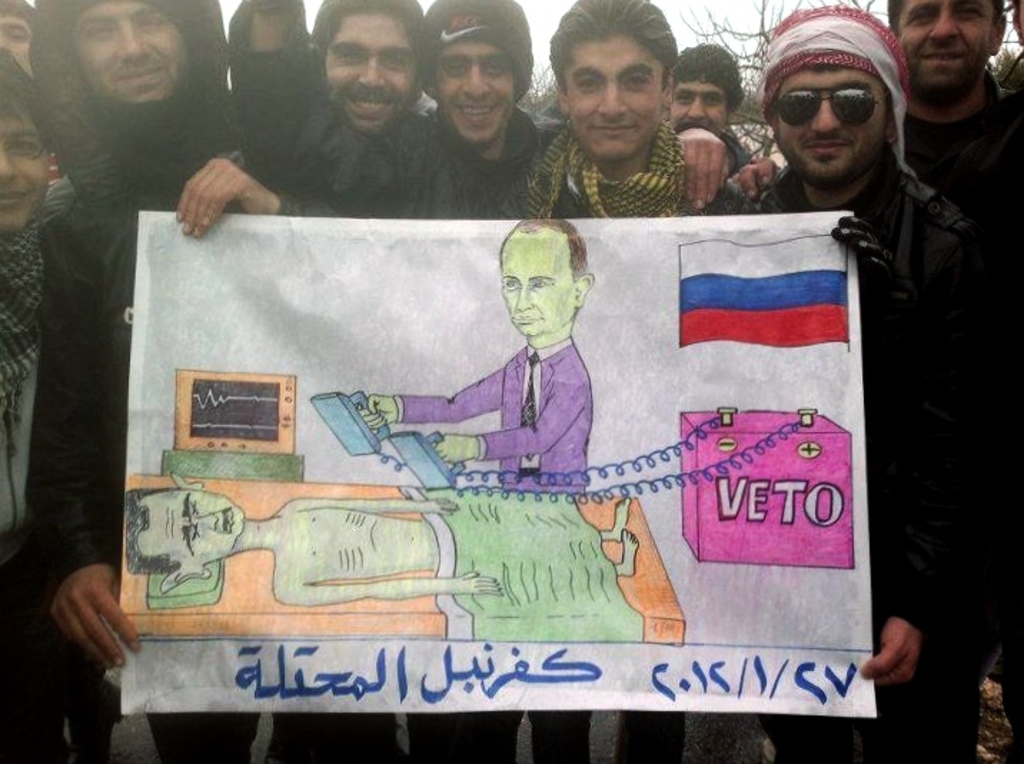 VETO
كفرنبل المحتلة ٢٠١٢/١/٢٧